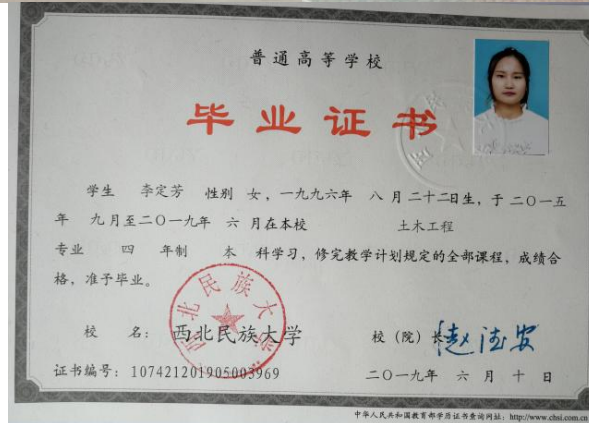 普通高等学校
毕业证书
学生 李定芳 性别 女，一九九六年 八 月二十二日生，于二〇一五
年 九月至二〇一九年 六 月在本校 土木工程
专业 四 年制 本 科学习，修完教学计划规定的全部课程，成绩合
格，准予毕业。
校 名： 西北民族大学 校（院）长：
西北民族大学
证书编号：107421201905003969 二〇一九年 六 月 十 日
中华人民共和国教育部学历证书查询网址：http://www.chsi.com.cn